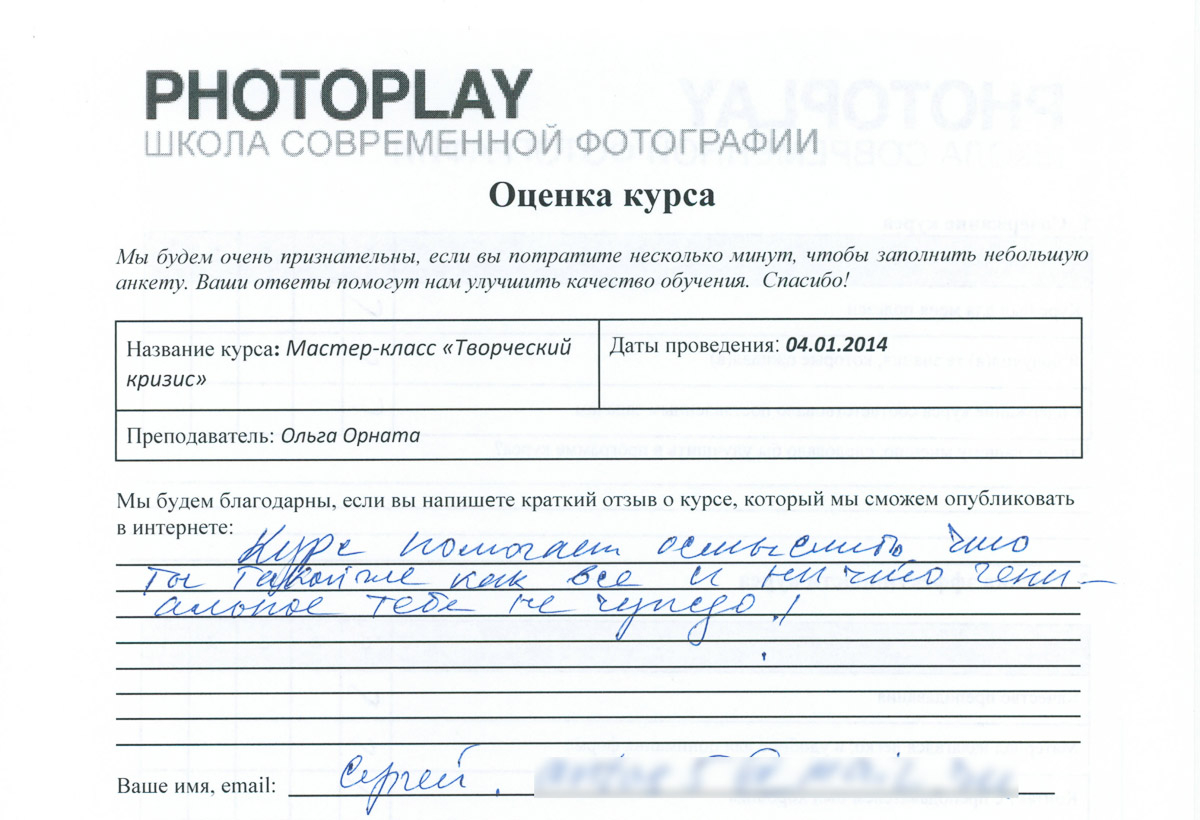 PHOTOPLAY
ШКОЛА СОВРЕМЕННОЙ ФОТОГРАФИИ
Оценка курса
Мы будем очень признательны, если вы потратите несколько минут, чтобы заполнить небольшую
анкету. Ваши ответы помогут нам улучшить качество обучения. Спасибо!
Название курса: Мастер-класс «Творческий
кризис»
Даты проведения: 04.01.2014
Преподаватель: Ольга Орната
Мы будем благодарны, если вы напишете краткий отзыв о курсе, который мы сможем опубликовать
в интернете:
Курс помогает осмыслить что
ты такой же как все и ни чито гени-
альное тебе не чуждо!
Ваше имя, email: Сергей.